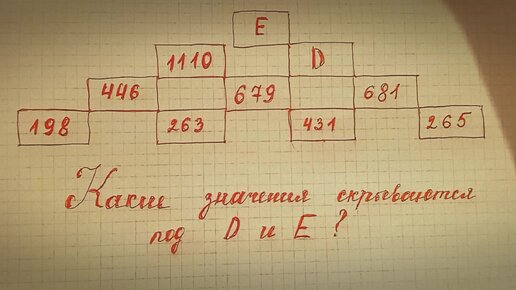 E
1110 D
446 679 681
198 263 431 265
Какие значения скрываются
под D и E ?